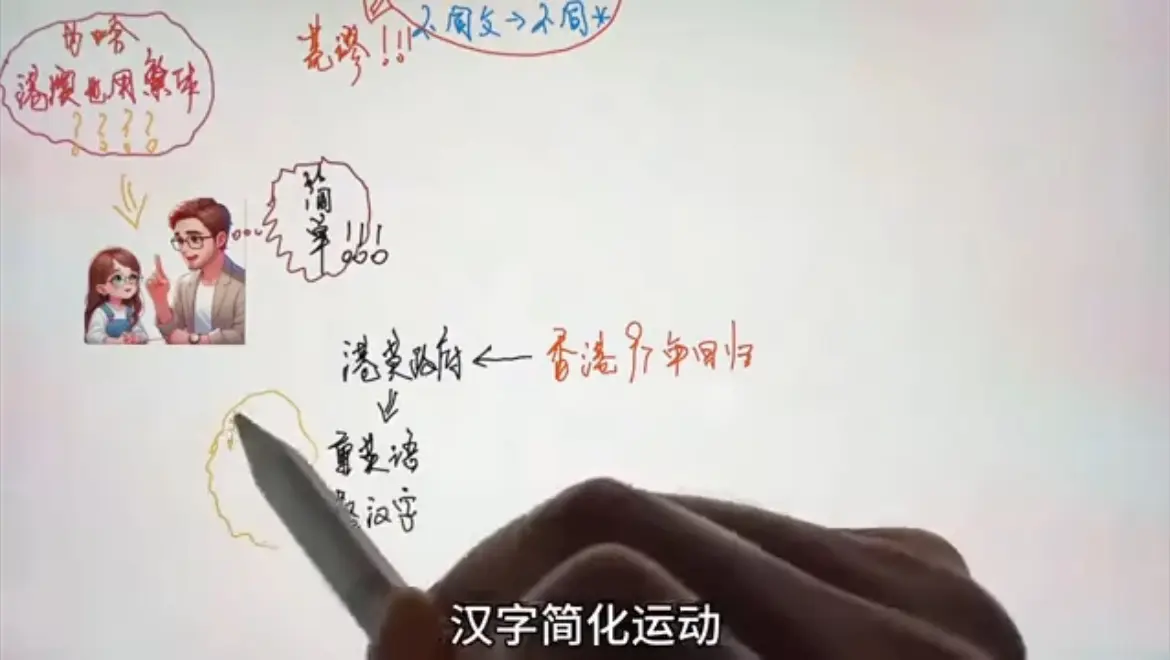 为啥
港澳也用繁体
????
荒谬!!!
不同文→不同
简单!!!
港英政府 ← 香港97年回归
重英语
汉字
汉字简化运动